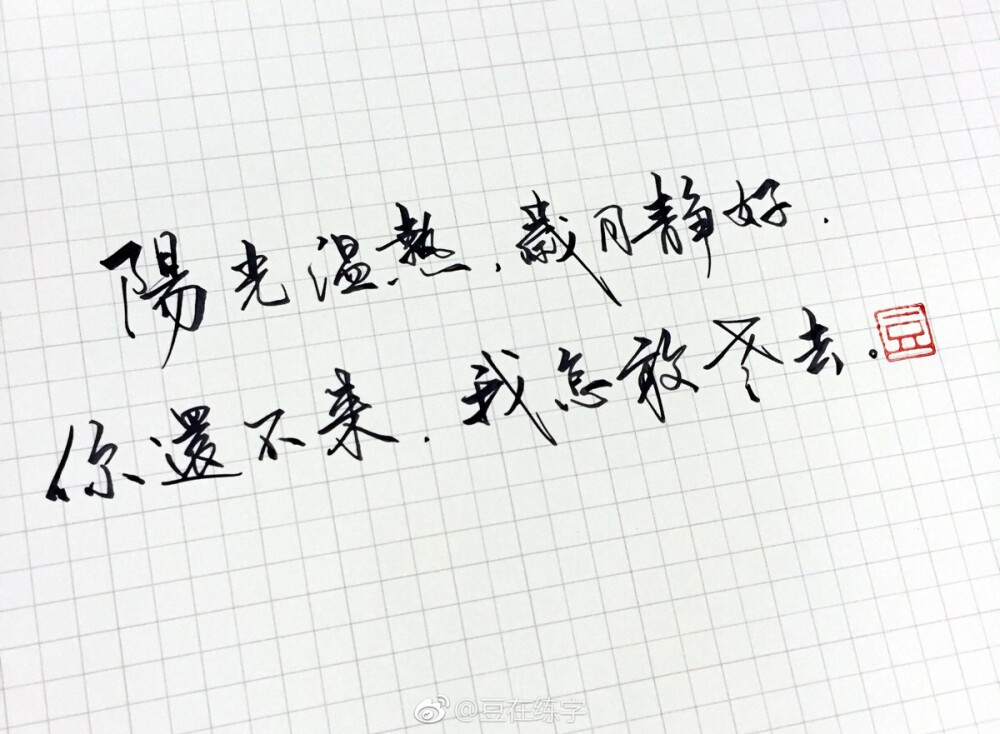 陽光温熱.歲月静好.
你還不来.我怎敢老去.
豆
@豆在练字